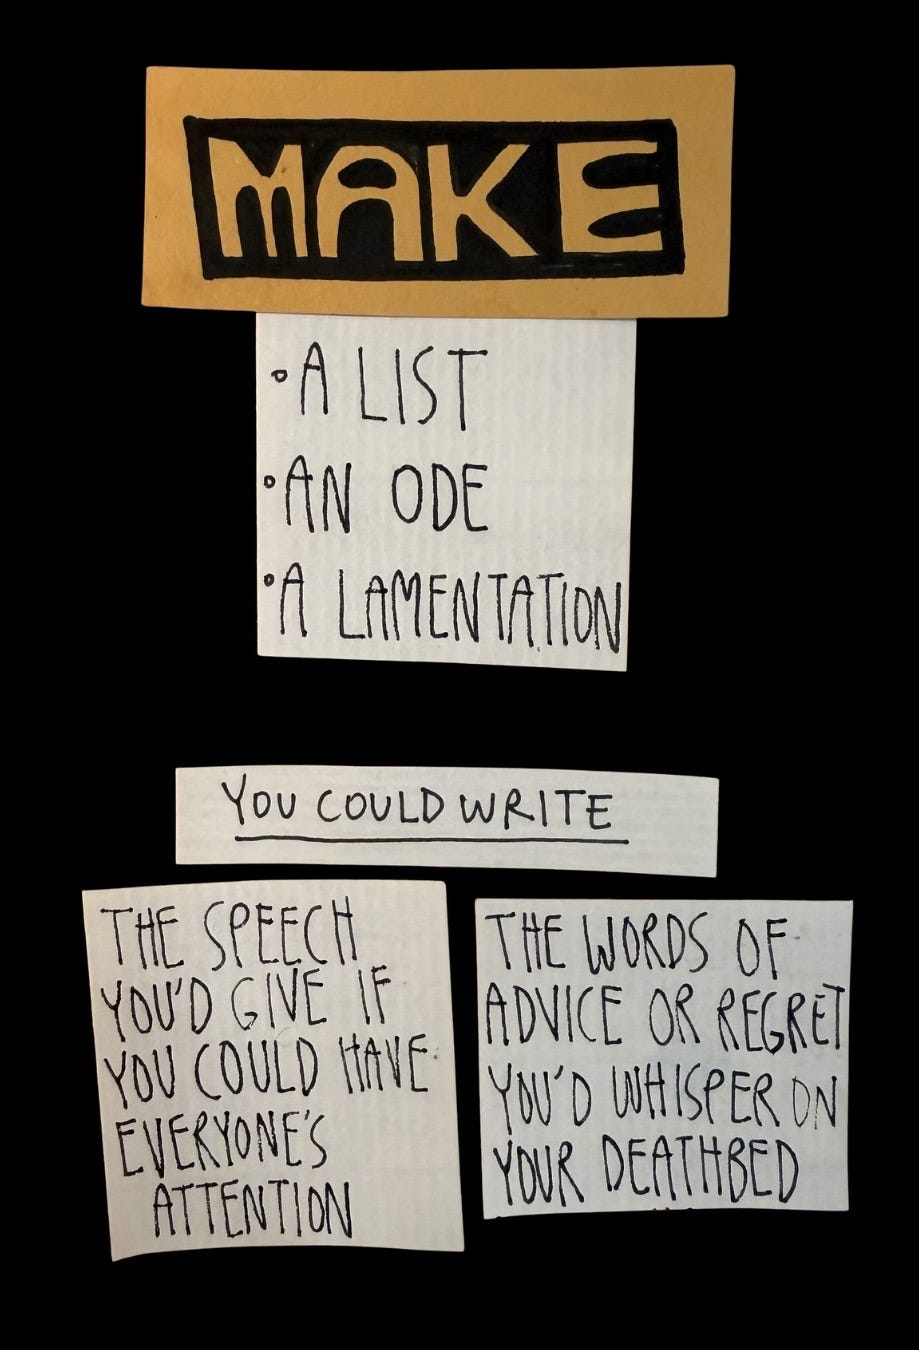 MAKE
• A LIST
• AN ODE
• A LAMENTATION
YOU COULD WRITE
THE SPEECH
YOU'D GIVE IF
YOU COULD HAVE
EVERYONE'S
ATTENTION
THE WORDS OF
ADVICE OR REGRET
YOU'D WHISPER ON
YOUR DEATHBED